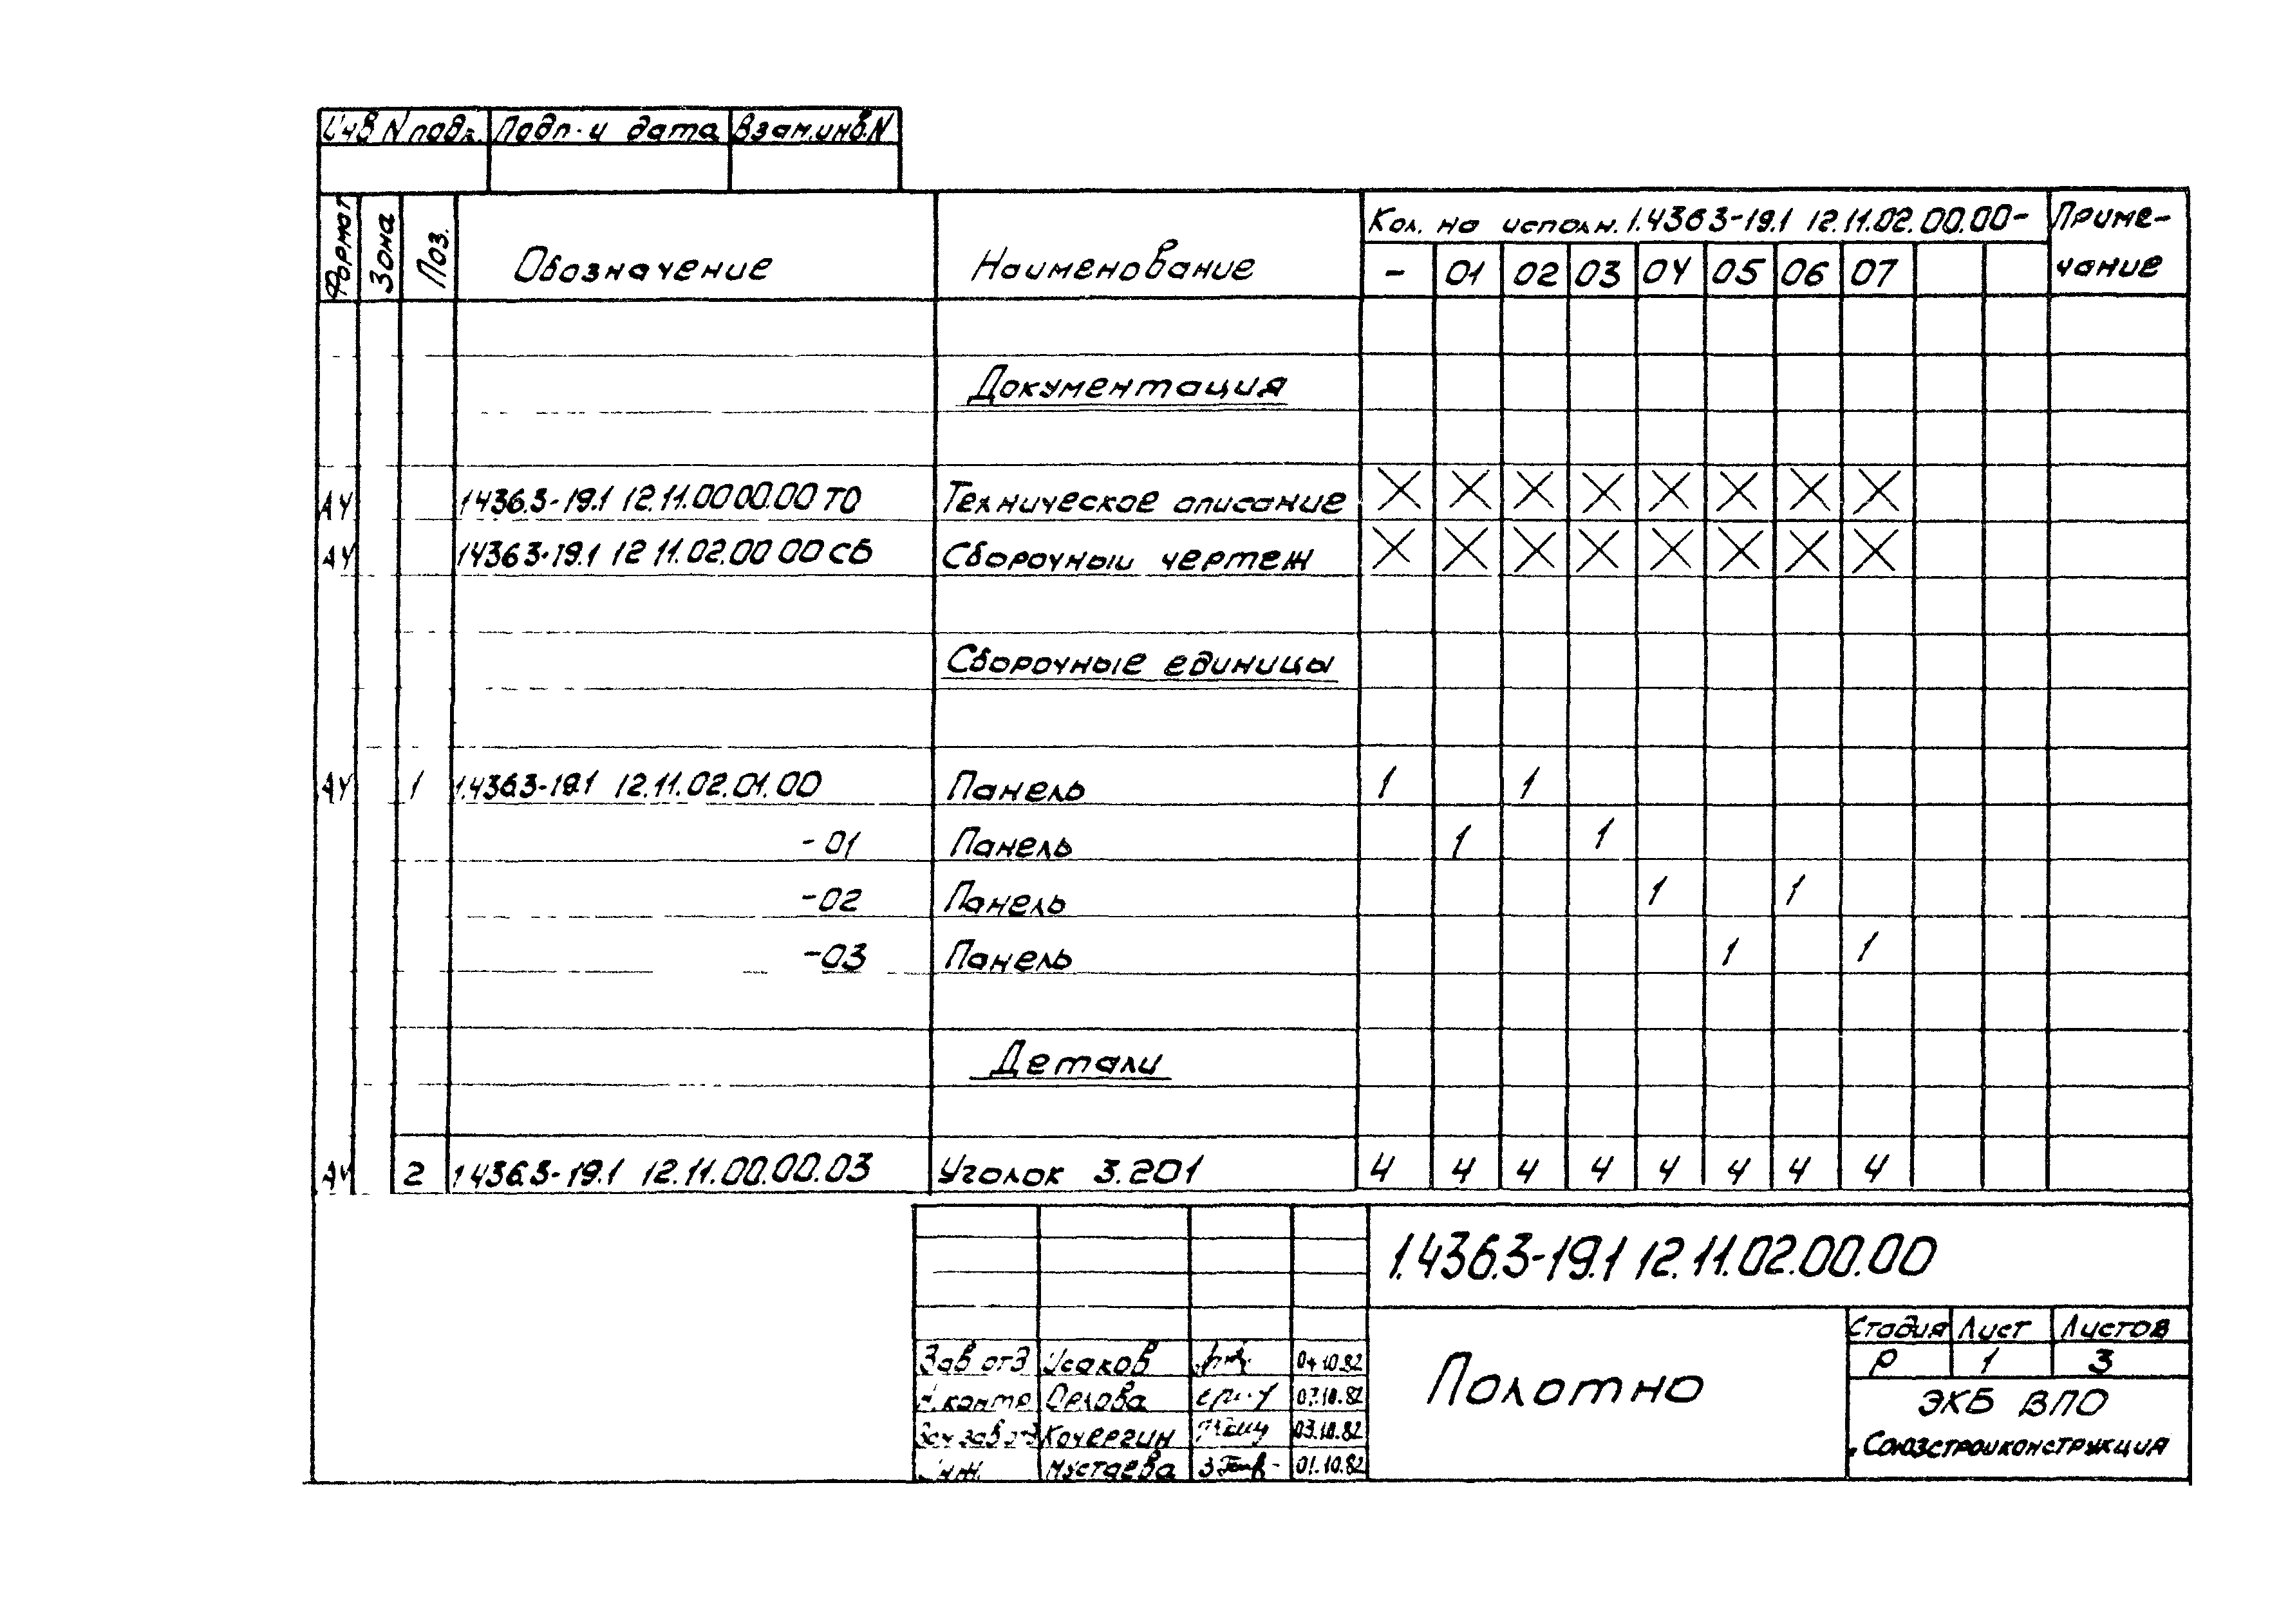 Инв N подл. Подп. и дата Взам.инв.N
Формат Зона Поз. Обозначение Наименование Кол. на исполн. 1.436.3-19.1 12.11.02.00.00- Приме-
- 01 02 03 04 05 06 07 чание
Документация
А4 1.436.3-19.1 12.11.00.00.00 ТО Техническое описание X X X X X X X X
А4 1.436.3-19.1 12.11.02.00.00 СБ Сборочный чертеж X X X X X X X X
Сборочные единицы
А4 1 1.436.3-19.1 12.11.02.01.00 Панель 1 1
-01 Панель 1 1
-02 Панель 1 1
-03 Панель 1 1
Детали
А4 2 1.436.3-19.1 12.11.00.00.03 Уголок 3.201 4 4 4 4 4 4 4 4
1.436.3-19.1 12.11.02.00.00
Полотно
Стадия Лист Листов
Р 1 3
ЭКБ ВПО
"Союзстройконструкция
Зав отд Исаков 04.10.82
Н.контр Орлова 07.10.82
Зам зав отд Кочергин 03.10.82
Инж. Мустаева 01.10.82